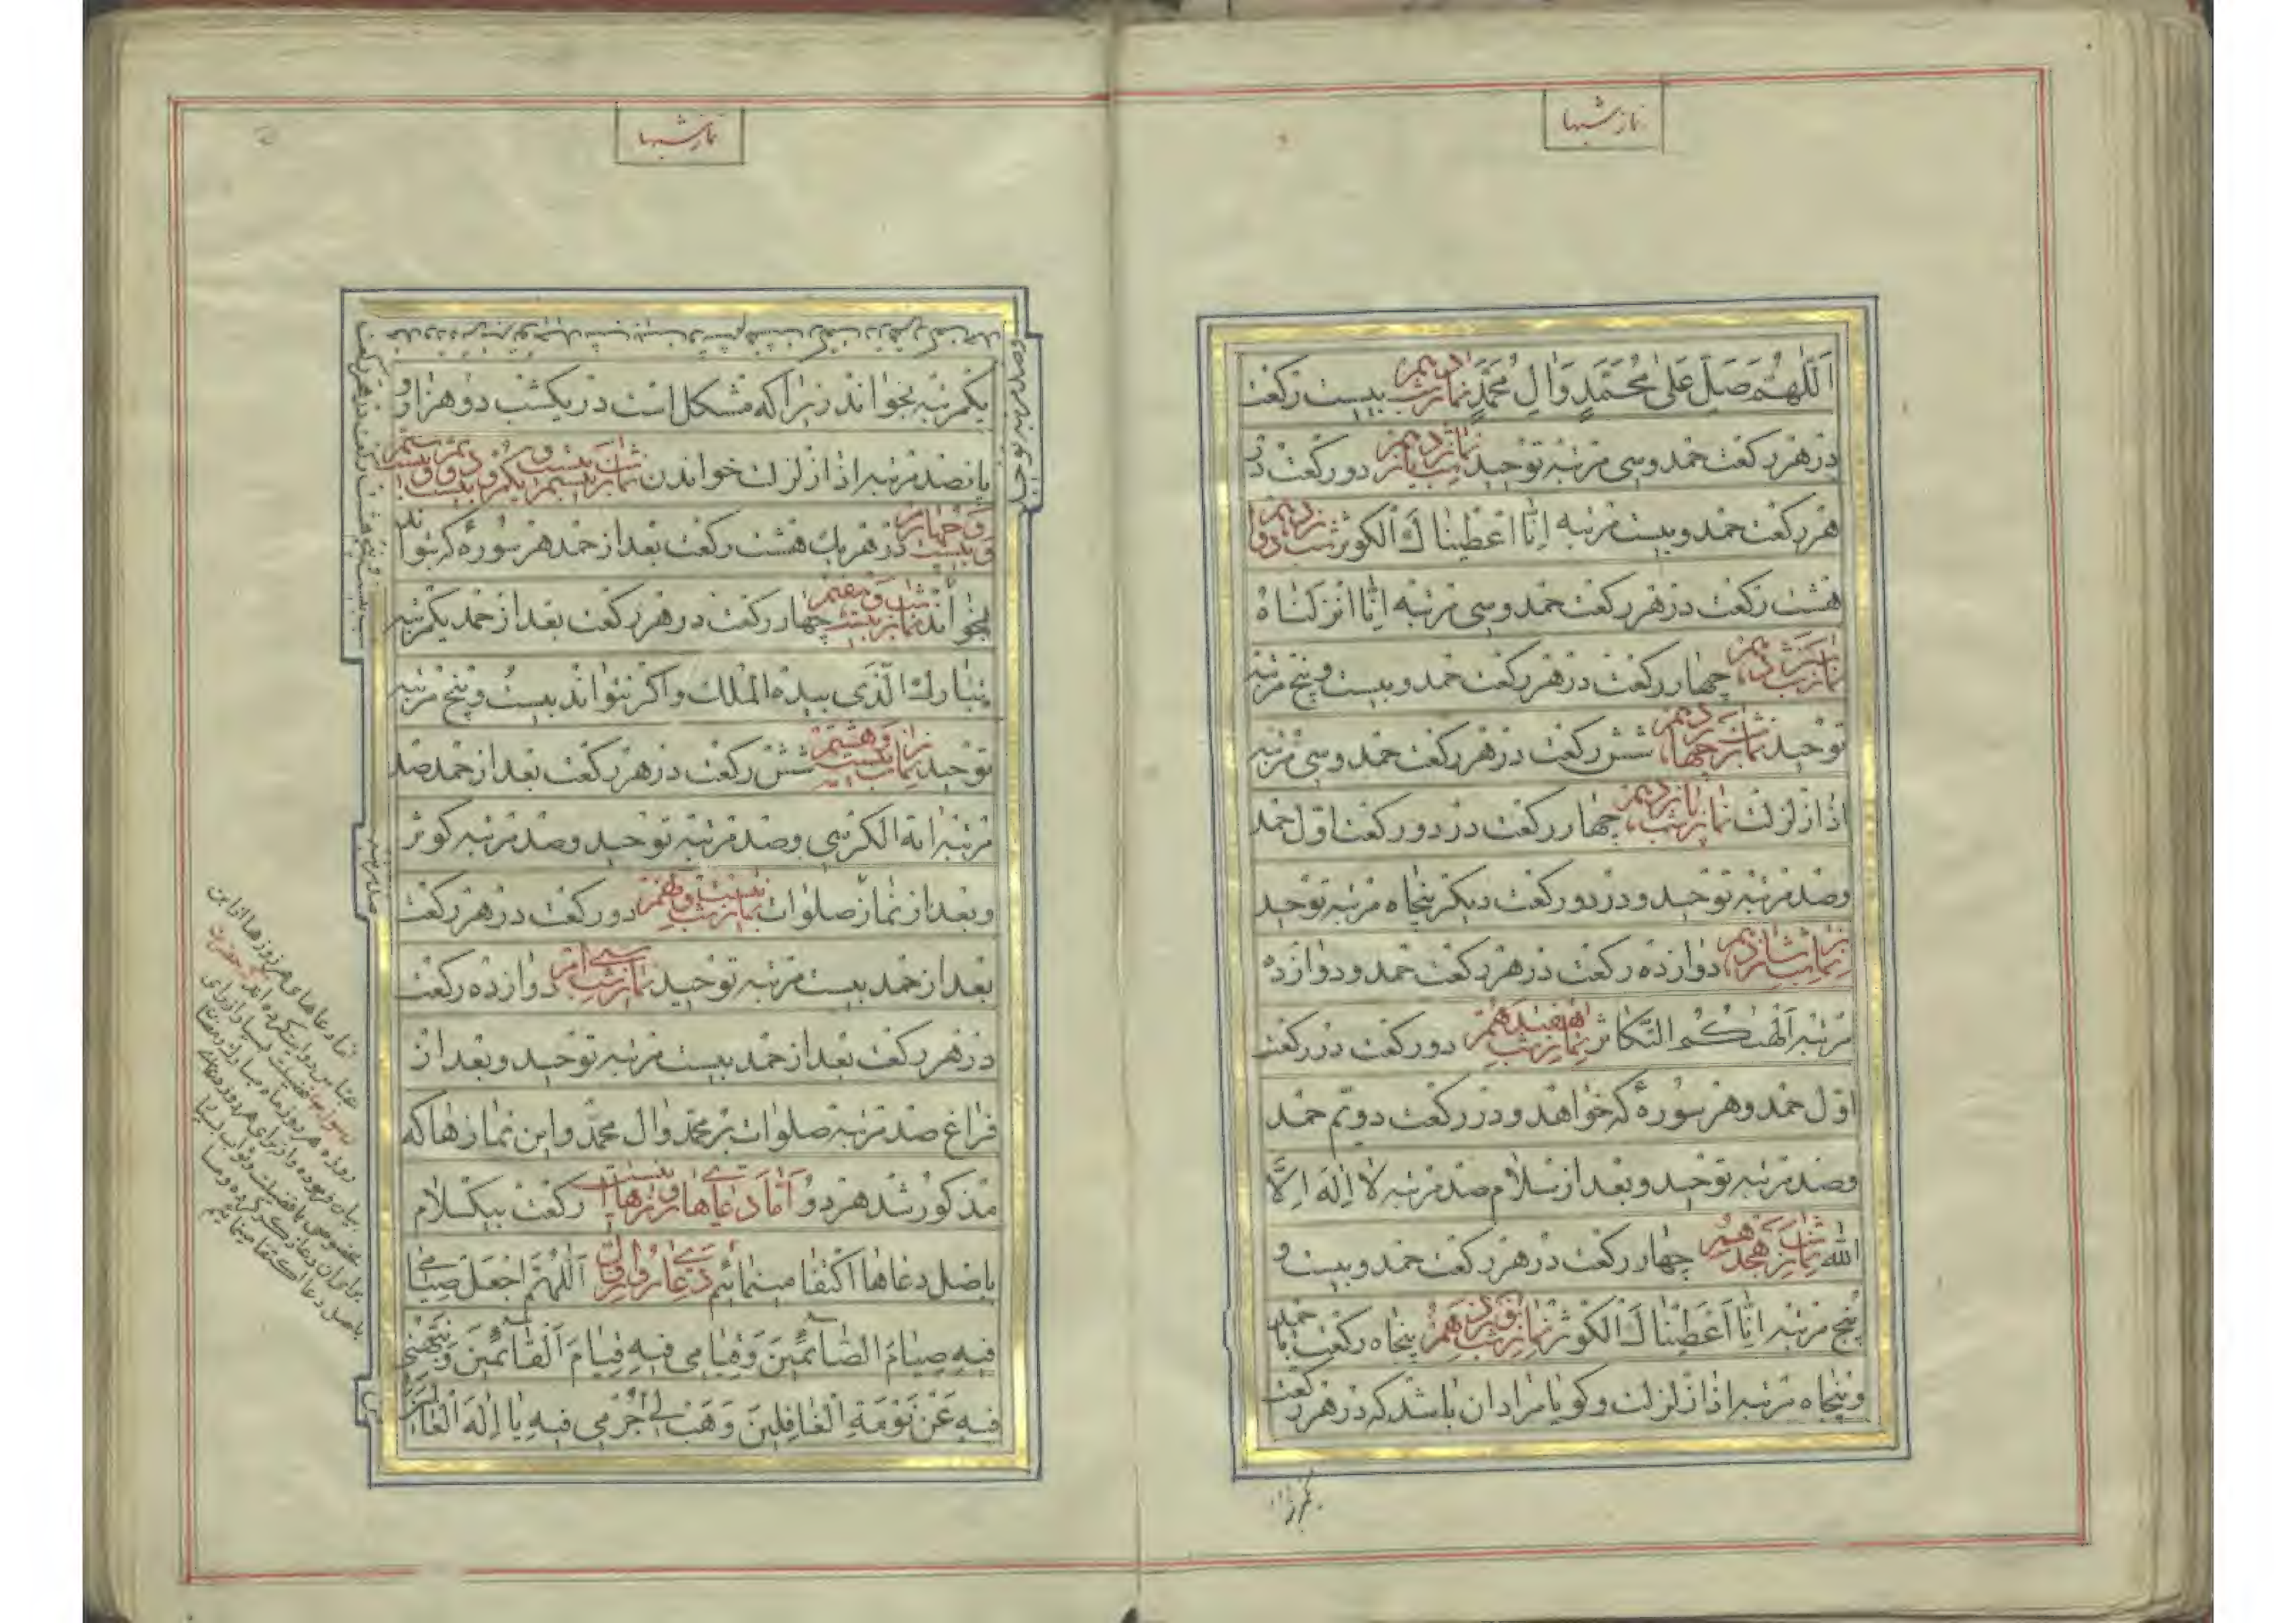 نماز شبها
اَللّٰهُمَّ صَلِّ عَلیٰ مُحَمَّدٍ وَاٰلِ مُحَمَّدٍ نماز شب دهم بیست رکعت
در هر رکعت حمد و سی مرتبه توحید نماز شب یازدهم دو رکعت در
هر رکعت حمد و بیست مرتبه اِنّا اَعْطَیْناكَ الْکَوْثَر شب دوازدهم
هشت رکعت در هر رکعت حمد و سی مرتبه اِنّا اَنْزَلْناهُ
نماز شب سیزدهم چهار رکعت در هر رکعت حمد و بیست و پنج مرتبه
توحید نماز شب چهاردهم شش رکعت در هر رکعت حمد و سی مرتبه
اذا زلزلت نماز شب پانزدهم چهار رکعت در دو رکعت اوّل حمد
و صد مرتبه توحید و در دو رکعت دیگر پنجاه مرتبه توحید
نماز شب شانزدهم دوازده رکعت در هر رکعت حمد و دوازده
مرتبه اَلْهٰیکُمُ التَّکاثُر نماز شب هفدهم دو رکعت در رکعت
اوّل حمد و هر سوره که خواهد و در رکعت دویّم حمد
و صد مرتبه توحید و بعد از سلام صد مرتبه لا اِلٰهَ اِلَّا
الله نماز شب هجدهم چهار رکعت در هر رکعت حمد و بیست و
پنج مرتبه اِنّا اَعْطَیْناكَ الْکَوْثَر نماز شب نوزدهم پنجاه رکعت با حمد
و پنجاه مرتبه اذا زلزلت و کویا مراد ان باشد که در هر رکعت
نماز شبها
وصد مرتبه توحید
یکمرتبه بخواند زیرا که مشکل است در یکشب دو هزار و
پانصد مرتبه اذا زلزلت خواندن نماز شب بیستم و بیست و یکم و بیست و دویم و بیست و سیم
و بیست و چهارم در هر یك هشت رکعت بعد از حمد هر سوره که بتواند
بخواند نماز شب بیست و هفتم چهار رکعت در هر رکعت بعد از حمد یکمرتبه
تبارك الّذی بیده الملك و اکر نتواند بیست و پنج مرتبه
توحید نماز شب بیست و هشتم شش رکعت در هر رکعت بعد از حمد صد
مرتبه ایة الکرسی و صد مرتبه توحید و صد مرتبه کوثر
و بعد از نماز صلوات نماز شب بیست و نهم دو رکعت در هر رکعت
بعد از حمد بیست مرتبه توحید نماز شب سی ام دوازده رکعت
در هر رکعت بعد از حمد بیست مرتبه توحید و بعد از
فراغ صد مرتبه صلوات بر محمّد و ال محمّد و این نمازها که
مذکور شد هر دو رکعت بیکسلام امّا دعاهای روزها
باصل دعاها اکتفا مینمائیم دعای روز اول اَللّٰهُمَّ اجْعَلْ صِیامی
فیهِ صِیامَ الصّائِمینَ وَقِیامی فیهِ قِیامَ الْقائِمینَ وَنَبِّهْنی
فیهِ عَنْ نَوْمَةِ الْغافِلینَ وَهَبْ لی جُرْمی فیهِ یا اِلٰهَ الْعالَمینَ
امّا دعاهای هر روزها از ابن
عباس روایت کرده اند که حضرت
رسول فضیلت بسیار از برای
روزه هر روز ماه مبارك رمضان
بیان فرموده و از برای هر روز دعای
مخصوصی با فضیلت و ثواب بسیار
برای ان دعا ذکر کرده و ما
باصل دعا اکتفا مینمائیم